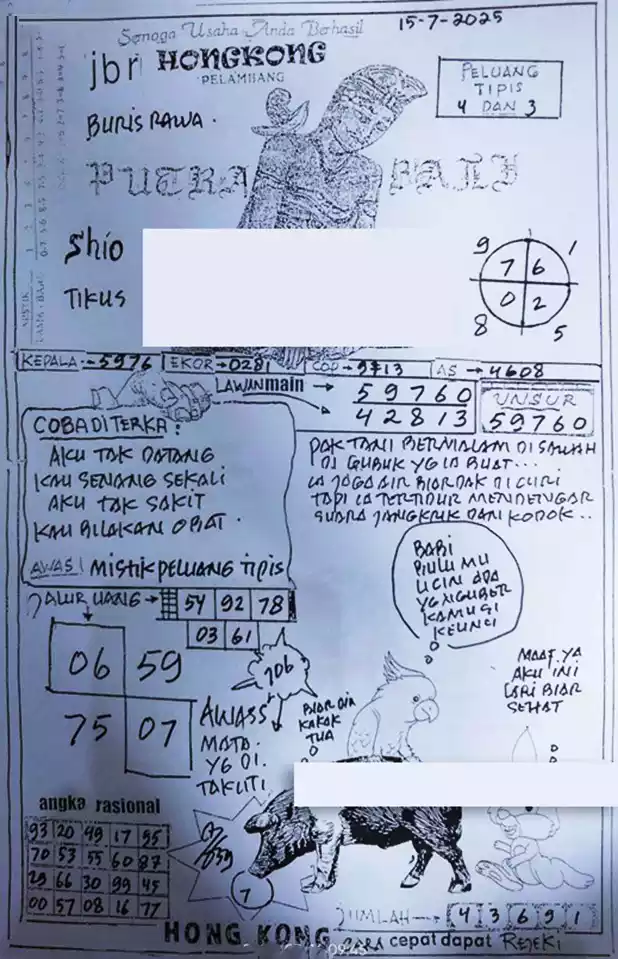 Semoga Usaha Anda Berhasil
15-7-2025
jbr HONGKONG
PELAMBANG
PELUANG
TIPIS
4 DAN 3
BURISRAWA.
PUTRA BALI
Shio
TIKUS
9 1
7 6
0 2
8 5
KEPALA 5976 EKOR 0281 COP 9713 AS 4608
LAWAN main 59760
42813
UNSUR
59760
COBA DITERKA:
AKU TAK DATANG
KAU SENANG SEKALI
AKU TAK SAKIT
KAU BILAKAN OBAT.
AWAS! MISTIK PELUANG TIPIS
PAK TANI BERMALAM DI SAWAH
DI GUBUK YG IA BUAT...
IA JOGO AIR BIAR DAK DI CURI
TAPI IA TERTIDUR MENDENGAR
SUARA JANGKRIK DAN KODOK..
JALUR UANG 54 92 78
03 61
06 59
75 07
706
AWASS
MATA.
YG DI.
TAKUTI
BABI
BULU MU
LICIN ADA
YG NGUBER
KAMU GI
KEUNCI
BIAR DIA
KAKAK
TUA
MAAF YA
AKU INI
LARI BIAR
SEHAT
angka rasional
93 20 49 17 95
70 53 55 60 87
29 66 30 99 45
00 57 08 16 77
7
JUMLAH 4 3 6 9 1
HONG KONG CARA cepat dapat REJEKI
09:45